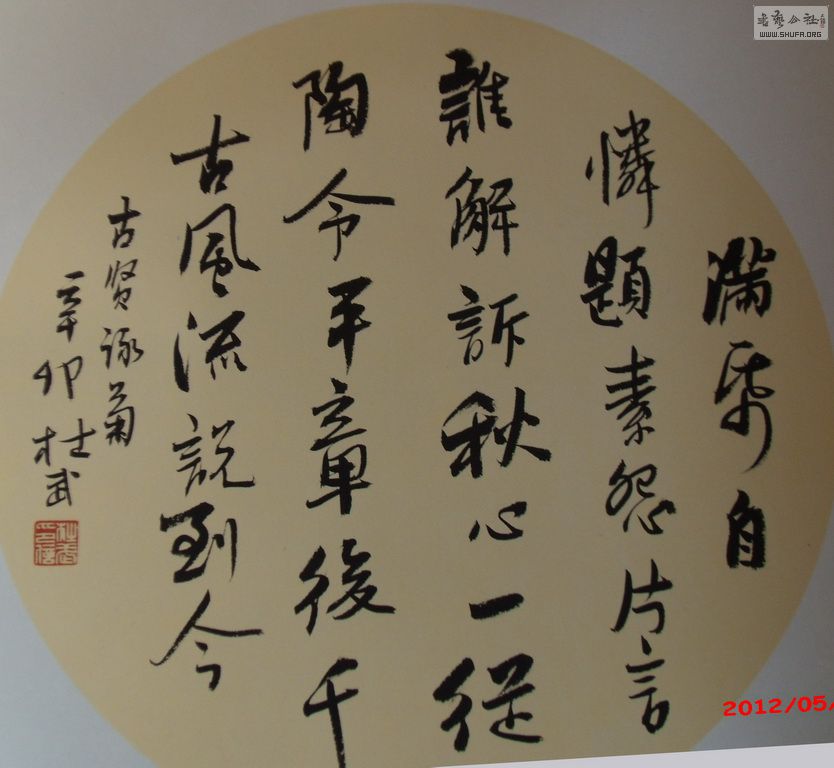 滿帋自
憐題素怨片言
誰解訴秋心一從
陶令平章後千
古風流說到今
古贤詠菊
辛卯杜武
WWW.SHUFA.ORG
2012/05/